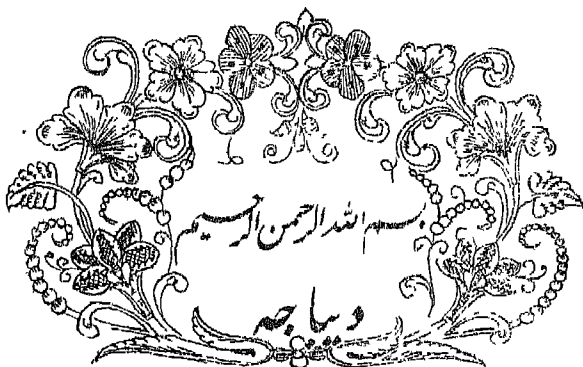 بسم الله الرحمن الرحیم
دیباچه